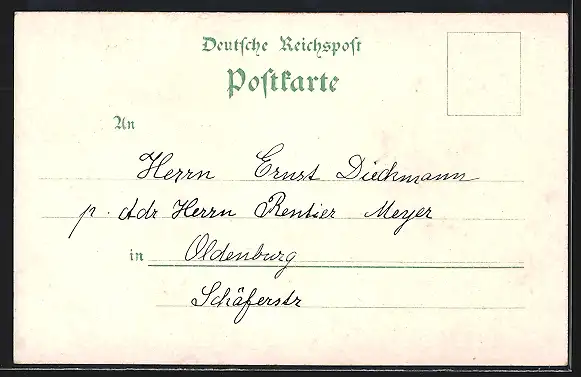 Deutsche Reichspost
Postkarte
An
Herrn Ernst Dieckmann
p. Adr Herrn Rentier Meyer
in Oldenburg
Schäferstr